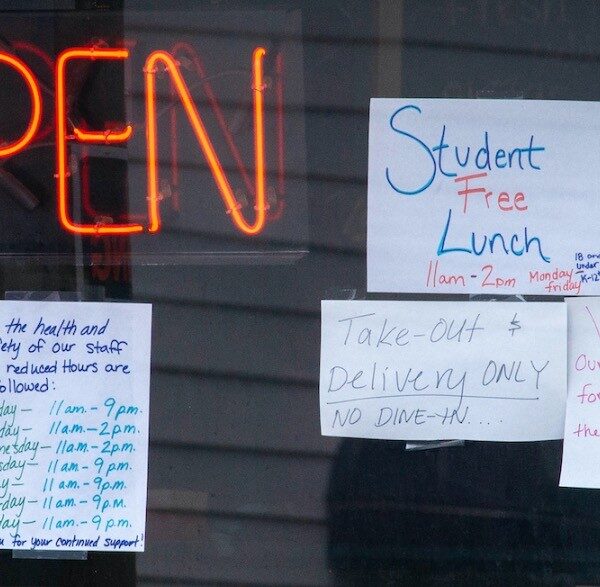 PEN
Student
Free
Lunch
11am - 2pm Monday
friday
18 and
under
K-12
the health and
ety of our staff
reduced Hours are
ollowed:
day — 11am. - 9pm.
day — 11am. - 2pm.
nesday — 11am. - 2pm.
sday — 11am - 9pm.
y — 11am. - 9pm.
day — 11am. - 9pm.
day — 11am. - 9pm.
u for your continued support!
Take-out &
Delivery ONLY
NO DINE-IN....
Ou
for
the